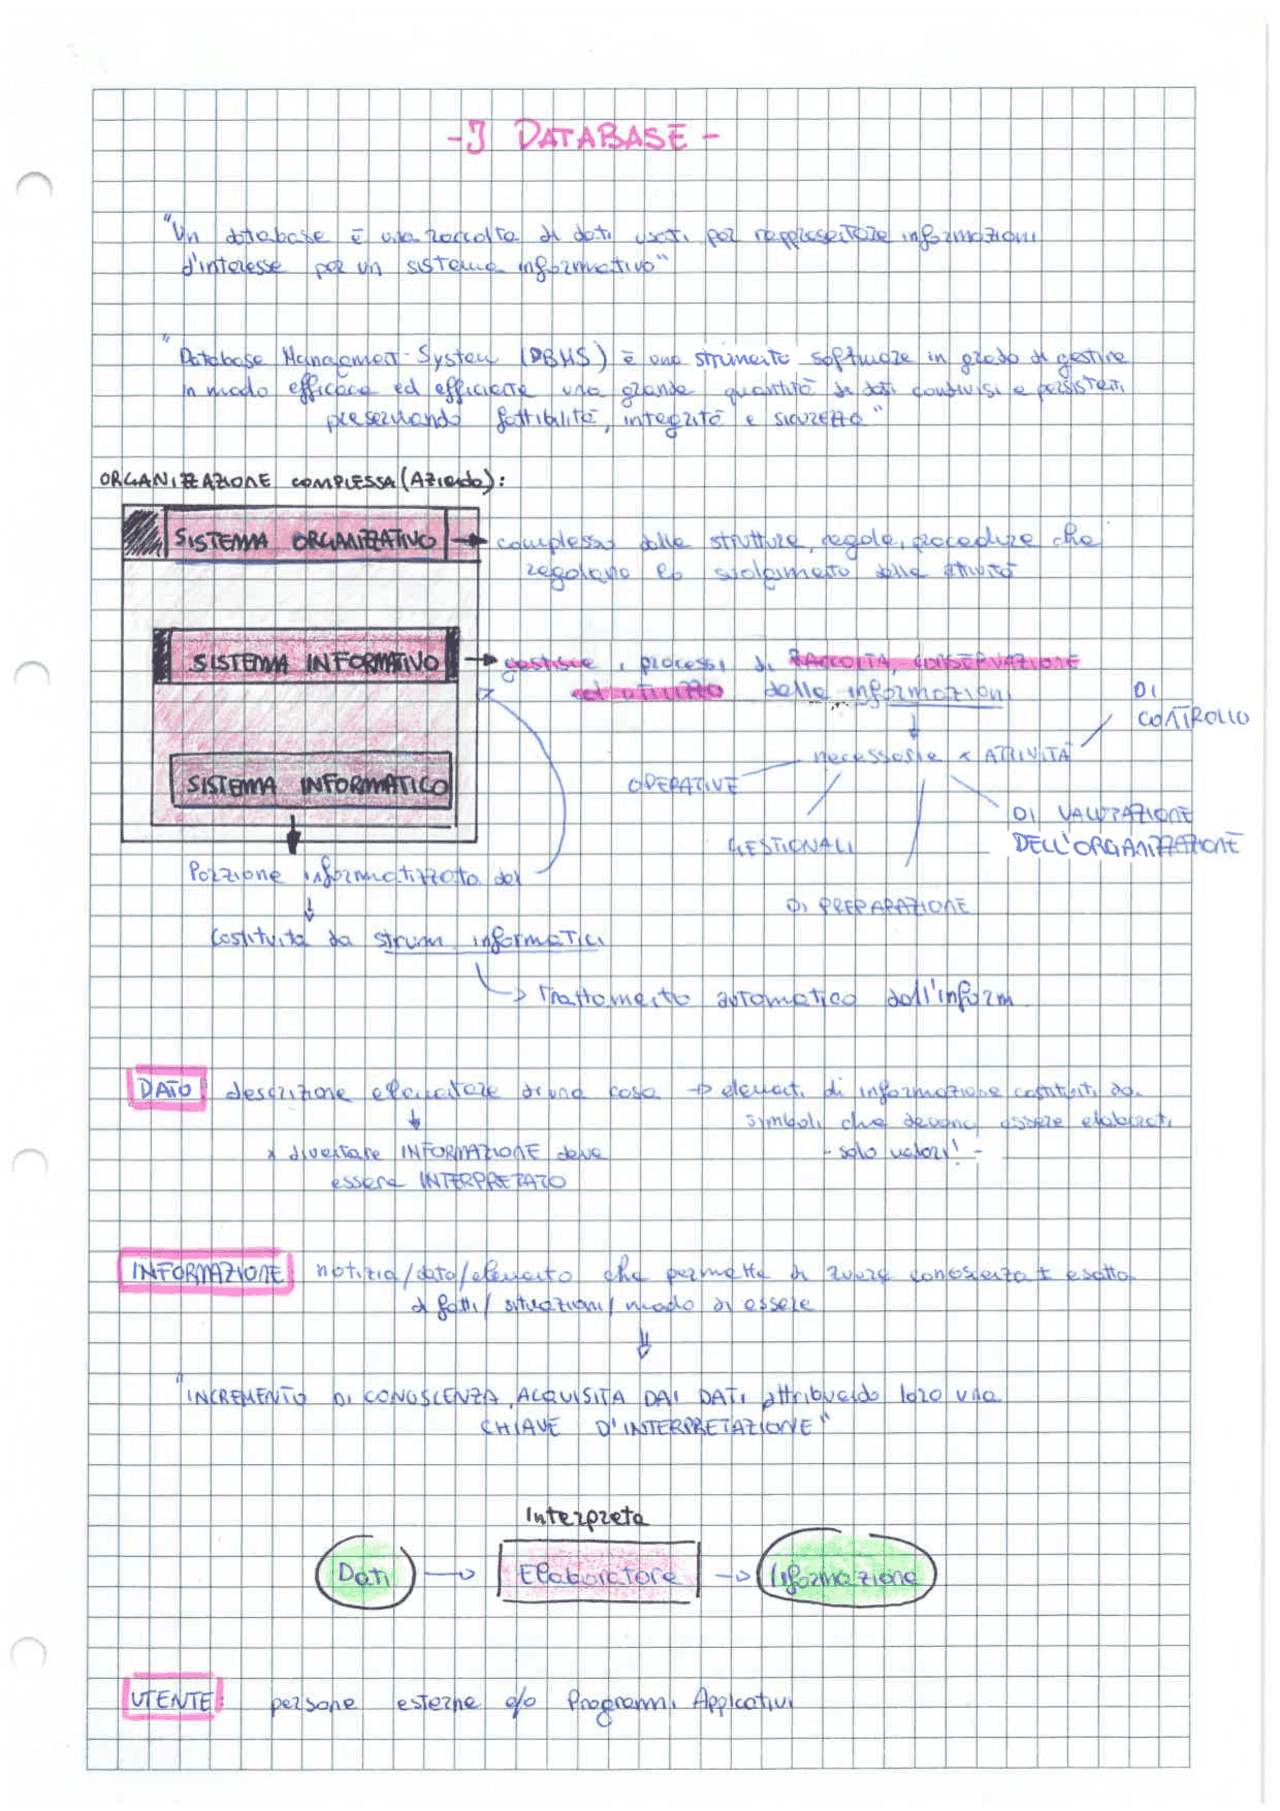 - I DATABASE -
"Un database è una raccolta di dati usati per rappresentare informazioni
d'interesse per un sistema informativo"
"Database Management System (DBMS) è uno strumento software in grado di gestire
in modo efficace ed efficiente una grande quantità di dati condivisi e persistenti
preservando fattibilità, integrità e sicurezza"
ORGANIZZAZIONE COMPLESSA (Azienda):
SISTEMA ORGANIZZATIVO → complesso delle strutture, regole, procedure che
regolano lo svolgimento delle attività
SISTEMA INFORMATIVO → gestisce i processi di RACCOLTA, CONSERVAZIONE
ed utilizzo delle informazioni
DI
CONTROLLO
necessarie x ATTIVITÀ
OPERATIVE
SISTEMA INFORMATICO
DI VALUTAZIONE
DELL'ORGANIZZAZIONE
GESTIONALI
Porzione informatizzata del
DI PREPARAZIONE
Costituita da strum informatici
→ Trattamento automatico dell'inform.
DATO descrizione elementare di una cosa → elementi di informazione costituiti da
simboli che devono essere elaborati
x diventare INFORMAZIONE deve - solo valori! -
essere INTERPRETATO
INFORMAZIONE notizia/dato/elemento che permette di avere conoscenza ± esatta
di fatti/ situazioni/ modo di essere
"INCREMENTO DI CONOSCENZA ACQUISITA DAI DATI attribuendo loro una
CHIAVE D'INTERPRETAZIONE"
Interpreta
Dati → Elaboratore → Informazione
UTENTE: persone esterne e/o Programmi Applicativi